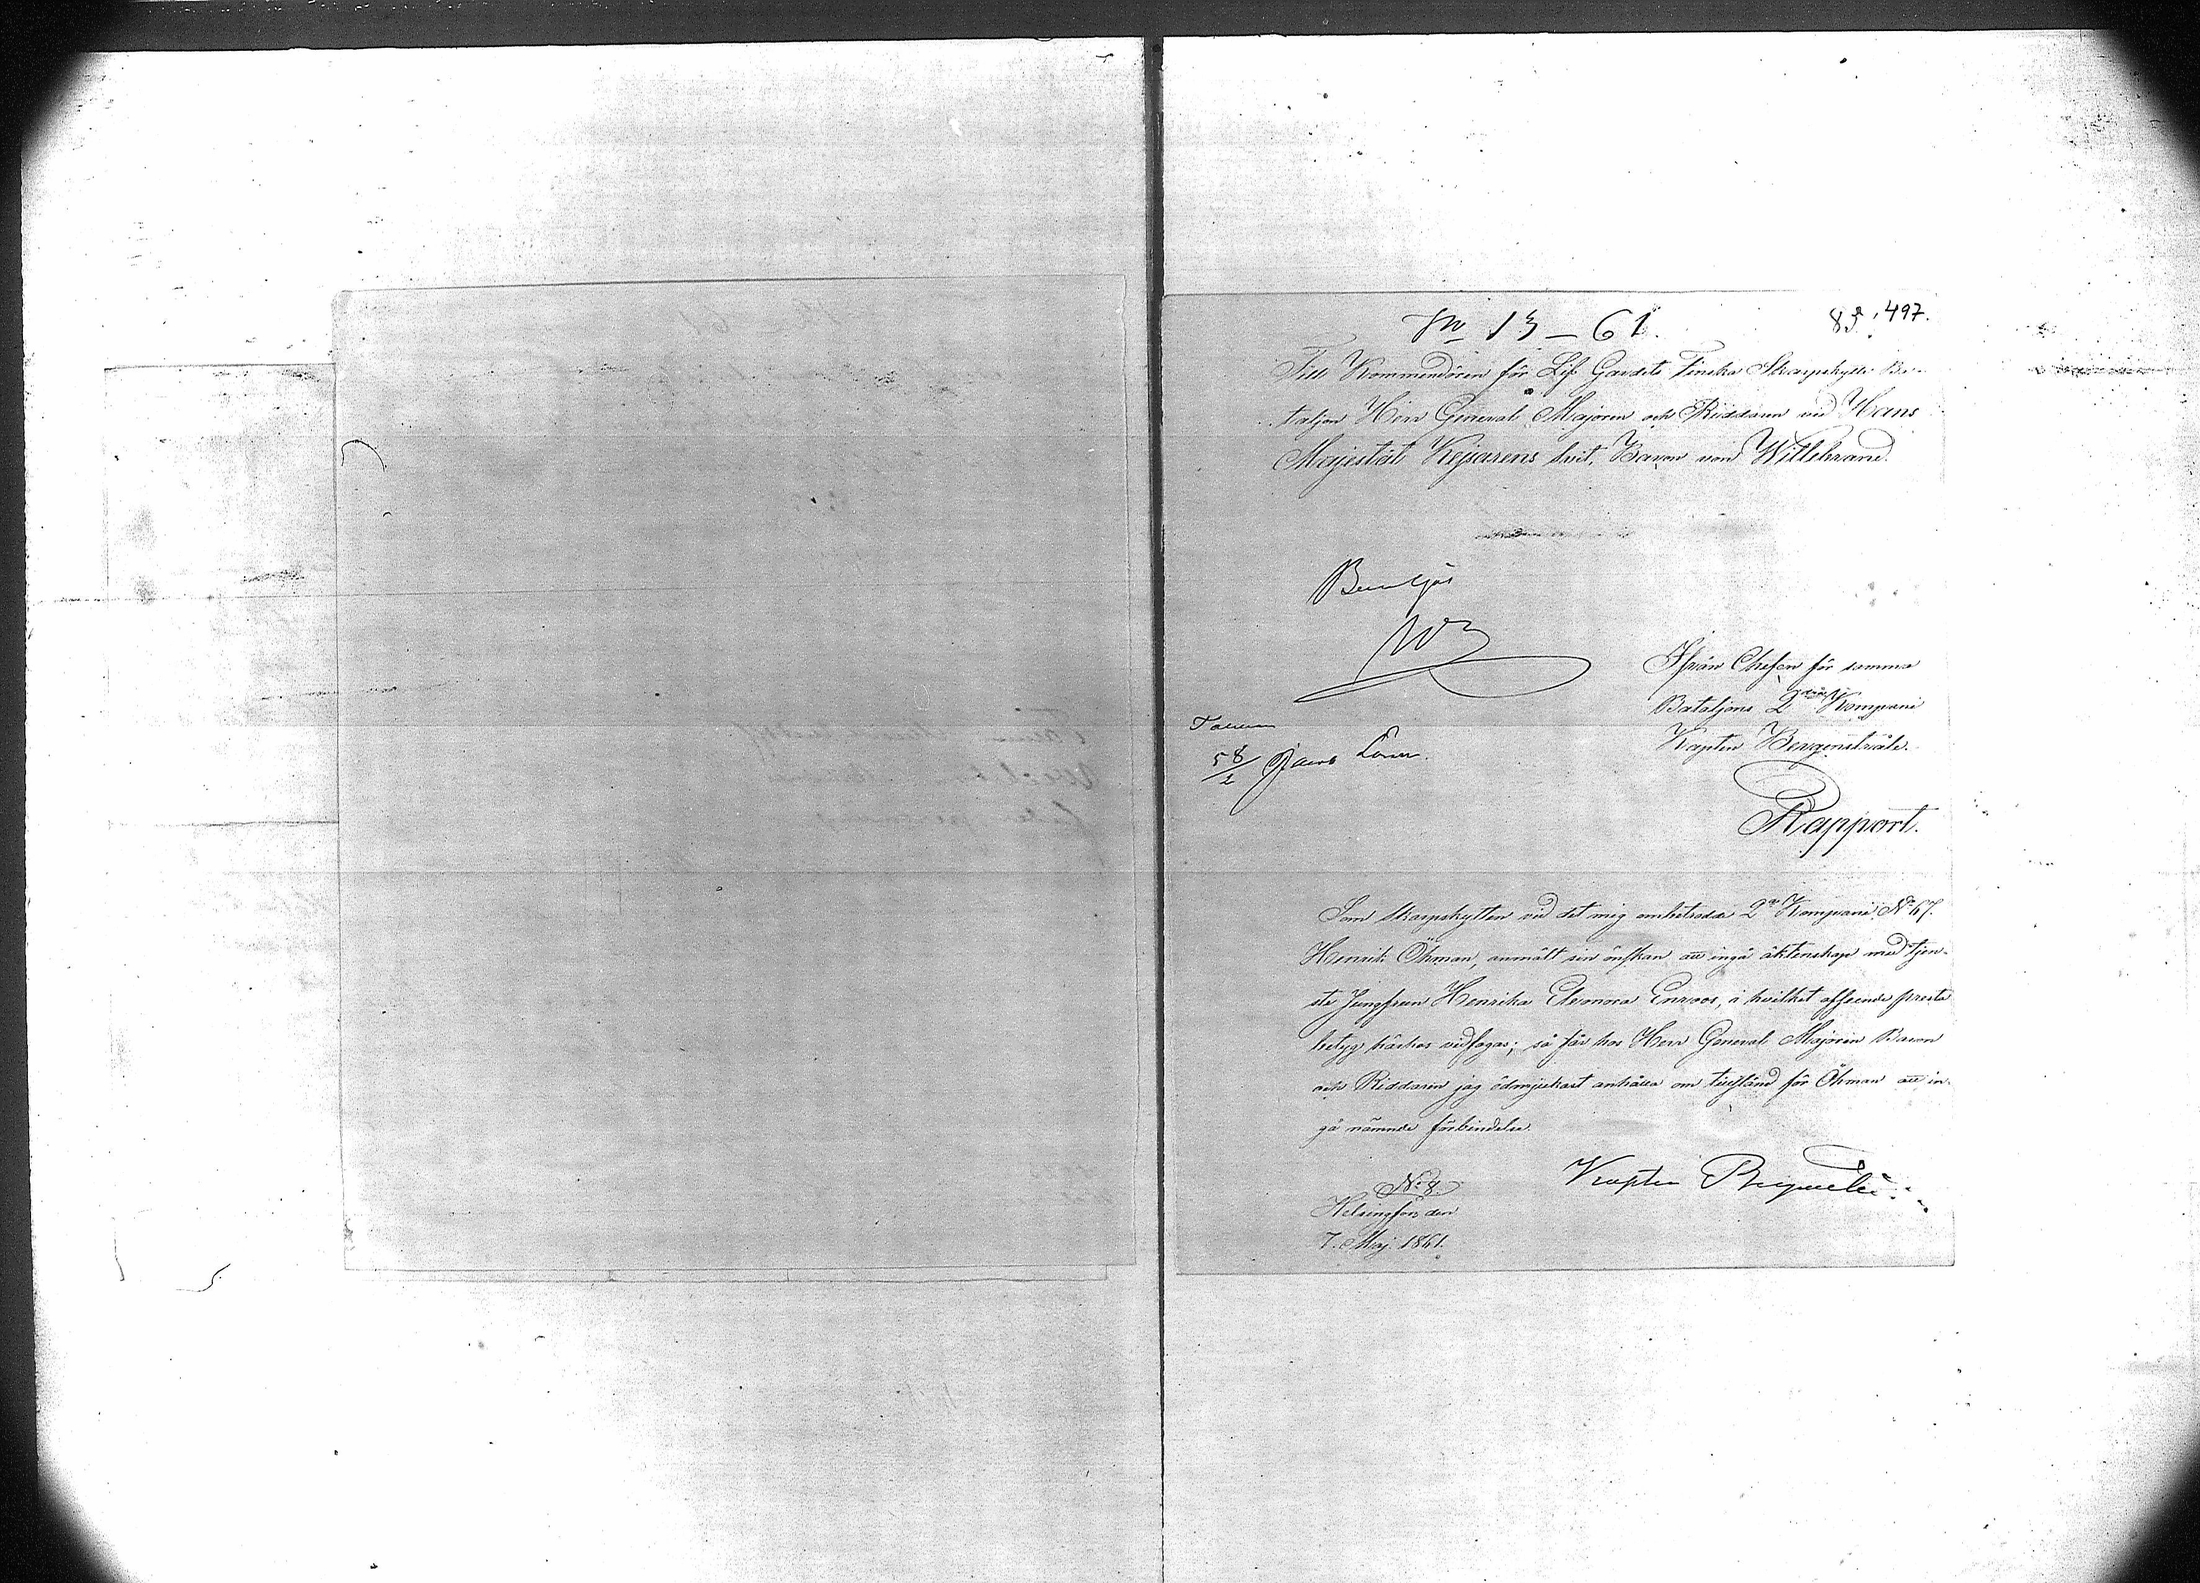 No 13-61.
497.
Till Kommendören för Lif Gardets Finska Skarpskytte Ba-
taljon Herr General Majoren och Riddaren vid Hans
Majestät Kejsarens Svit, Baron von Willebrand.
Beviljas
Ifrån Chefen för samma
Bataljons 2dra Kompani
Kapten Bergenstråle.
58/2
Rapport.
Som Skarpskytten vid det mig anbetrodde 2a Kompani, No 67.
Henrik Öhman, anmält sin önskan att ingå äktenskap med tjen-
ste Jungfrun Henrika Eleonora Enroos, i hvilket afseende preste
betyg härhos vidfogas; så får hos Herr General Majoren Baron
och Riddaren jag ödmjukast anhålla om tillstånd för Öhman att in-
gå nämnde förbindelse.
Kapten
No 8.
Helsingfors, den
7. Maj. 1861.